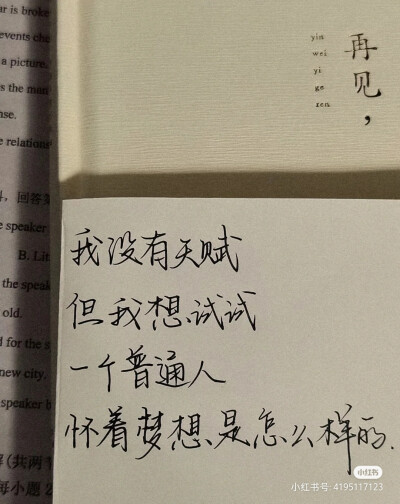 ar is broke
events cha
a picture.
s the man
nse.
e relations
回答第
e speaker
B. Lit
the speak
old.
d for the s
new city.
speaker h
(共两节
每小题 2
yin
wei
yi
ge
ren
再见，
我没有天赋
但我想试试
一个普通人
怀着梦想是怎么样的.
小红书
小红书号: 4195117123